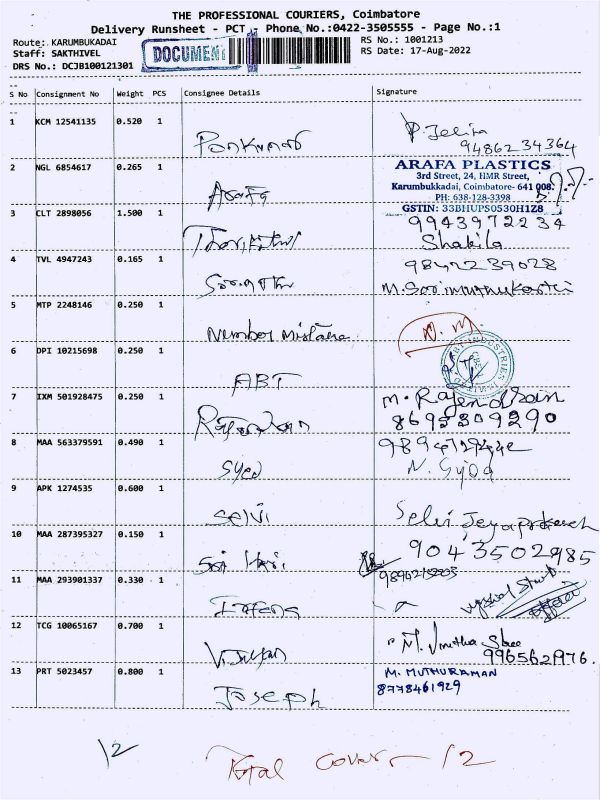 THE PROFESSIONAL COURIERS, Coimbatore
Delivery Runsheet - PCT - Phone No.:0422-3505555 - Page No.:1
Route: KARUMBUKADAI RS No.: 1001213
Staff: SAKTHIVEL DOCUMENT RS Date: 17-Aug-2022
DRS No.: DCJB100121301
S No Consignment No Weight PCS Consignee Details Signature
1 KCM 12541135 0.520 1
9486234364
2 NGL 6854617 0.265 1
ARAFA PLASTICS
3rd Street, 24, HMR Street,
Karumbukkadai, Coimbatore- 641 008.
PH: 638-128-3398
GSTIN: 33BHUPS0530H1Z8
3 CLT 2898056 1.500 1
9943972234
Shakila
4 TVL 4947243 0.165 1
9842239028
5 MTP 2248146 0.250 1 Number mistake
6 DPI 10215698 0.250 1 ABT
7 IXM 501928475 0.250 1 M. Rajendran
8695309290
8 MAA 563379591 0.490 1 Syed
9 APK 1274535 0.600 1 Selvi Selvi Jeyaprakash
10 MAA 287395327 0.150 1 Sri Hari 9043502985
11 MAA 293901337 0.330 1
12 TCG 10065167 0.700 1
9965621976.
13 PRT 5023457 0.800 1 Joseph M. MUTHURAMAN
8778461929
12 Total Cover - 12